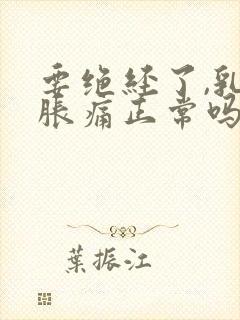 要绝经了,乳
胀痛正常吗
葉振江